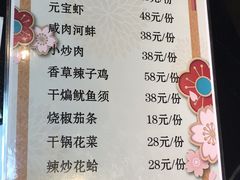 元宝虾 48元/份
咸肉河蚌 38元/份
小炒肉 38元/份
香草辣子鸡 58元/份
干煸鱿鱼须 38元/份
烧椒茄条 18元/份
干锅花菜 28元/份
辣炒花蛤 28元/份